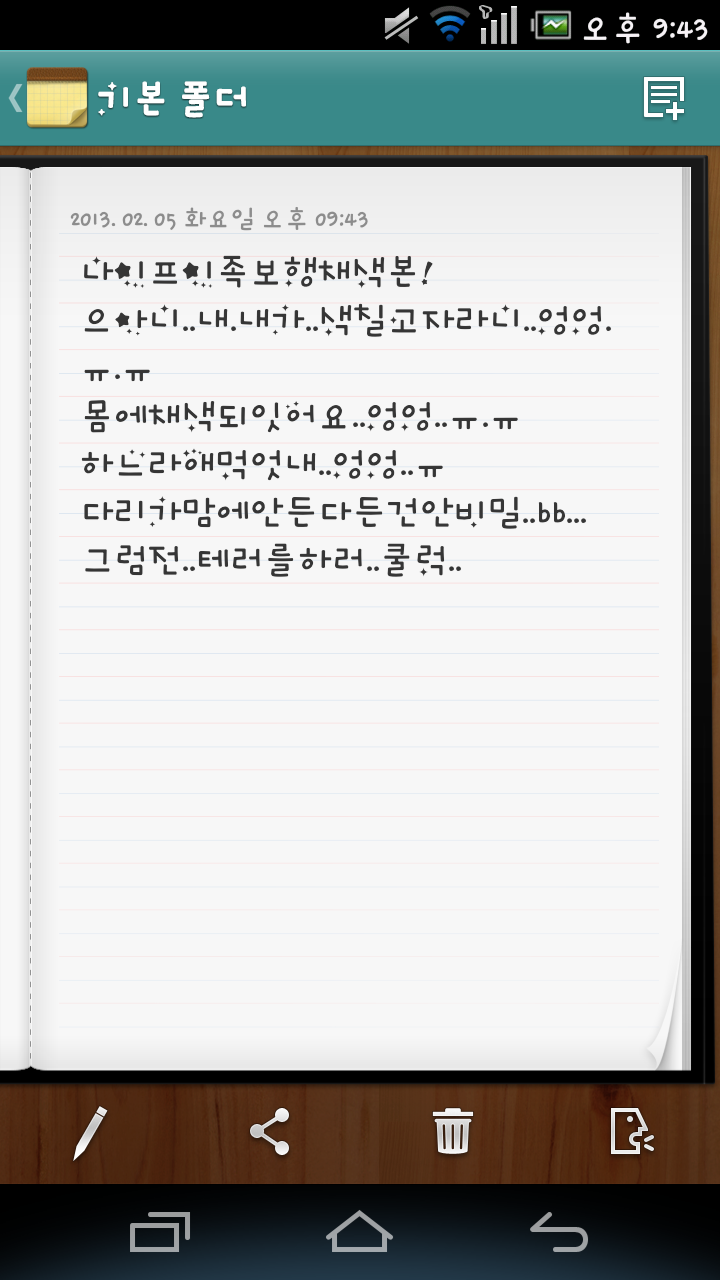 오후 9:43
기본 폴더
2013. 02. 05 화요일 오후 09:43
나이프이족보행채색본!
으아니..내.내가..색칠고자라니..엉엉.
ㅠ.ㅠ
몸에채색되잇어요..엉엉..ㅠ.ㅠ
하느라애먹엇내..엉엉..ㅠ
다리가맘에안든다든건안비밀..bb...
그럼전..테러를하러..쿨럭..